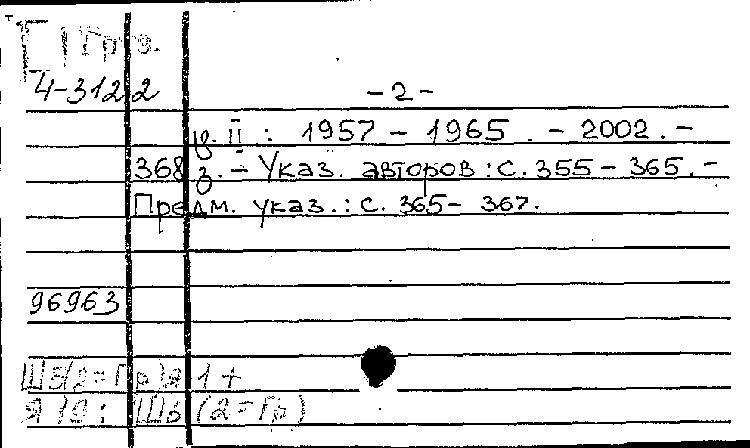 Г Груз.
4-3122
- 2 -
ც. II : 1957 - 1965. - 2002. -
368 გ. - Указ. авторов : с. 355 - 365. -
Предм. указ. : с. 365 - 367.
96963
Ш5(2=Гр)я1+
я19 : Ш6(2=Гр)